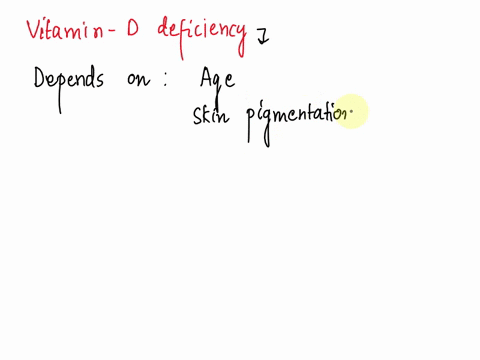 Vitamin - D deficiency
Depends on : Age
Skin pigmentation